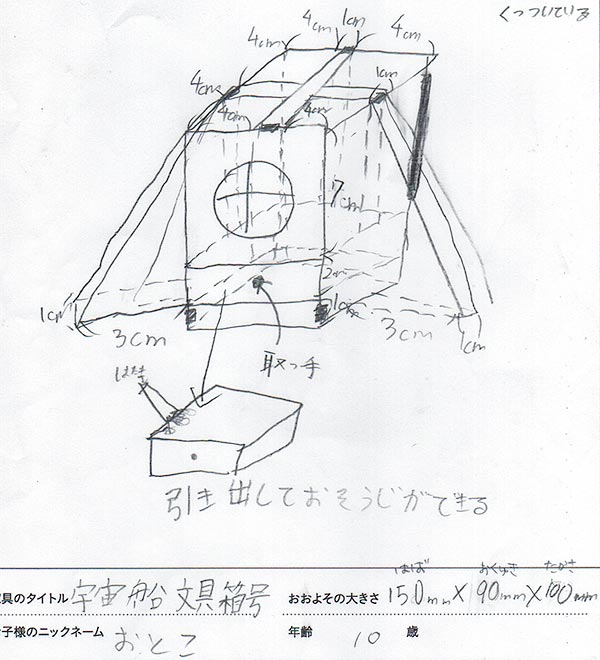 くっついている
4cm 1cm
4cm 4cm
4cm 1cm
4cm 4cm
7cm
2cm
1cm 1cm
3cm 3cm 1cm
取っ手
はたき
引き出しておそうじができる
はば おくゆき たかさ
具のタイトル 宇宙船文具箱号 おおよその大きさ 150mm×90mm×100mm
子様のニックネーム おとこ 年齢 10 歳